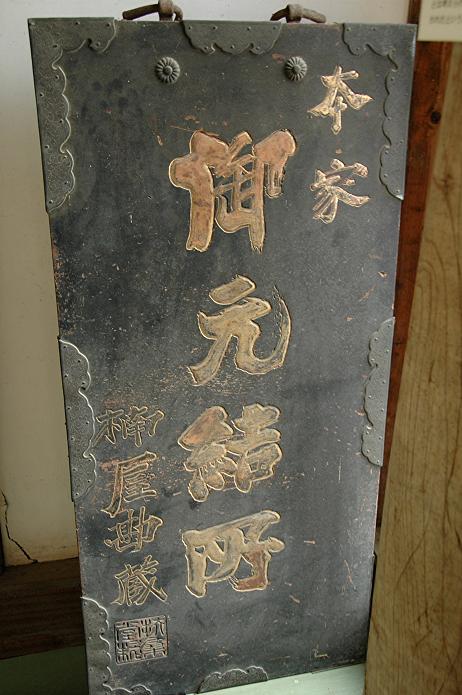 本家
御元結所
楠屋曲蔵